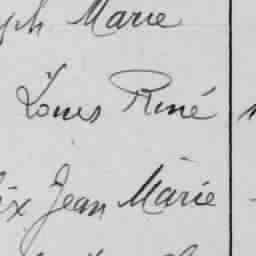 ph Marie
Louis René
ix Jean Marie